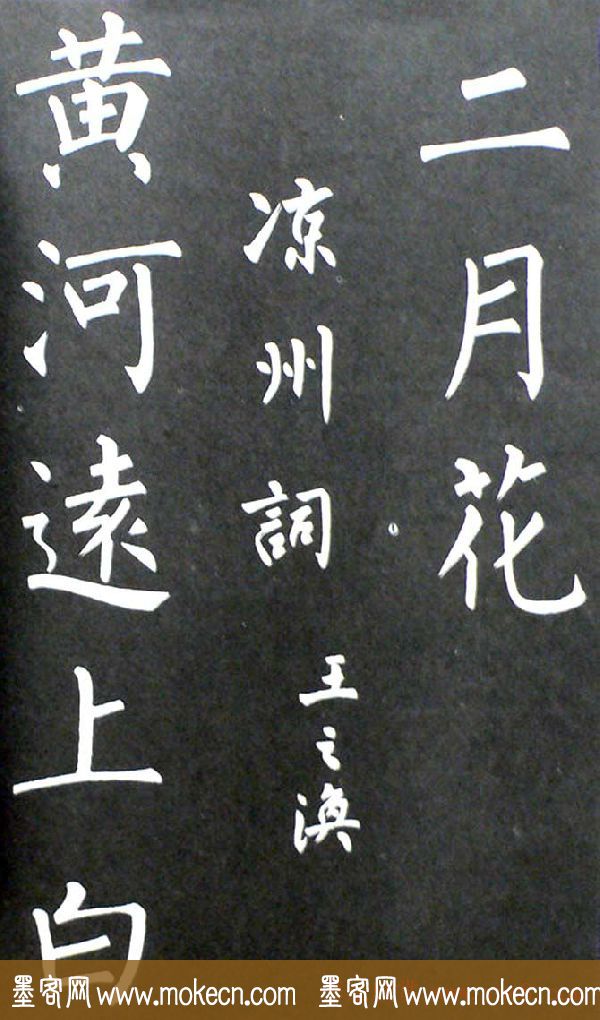 二月花
凉州詞
王之渙
黄河遠上白
墨客网 www.mokecn.com 墨客网 www.mokecn.com